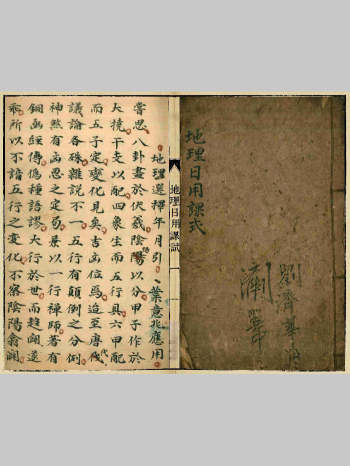 地理日用課式
劉濟
地理日用課試
地理選擇年月引、葉意兆應用
嘗思八卦畫於伏羲陰陽以分甲子作於
大撓干支以配四象生而五行具六甲配
而五子定變化見矣吉凶位焉迨至唐伐
代
議論各殊雜說不一五行有顛倒之分倒
神然有幽思之定局景以一行禪師著有
銅函經傳偽種語謬大行於世而趨闢還
乖所以不諳五行之變化不察陰陽翕闢